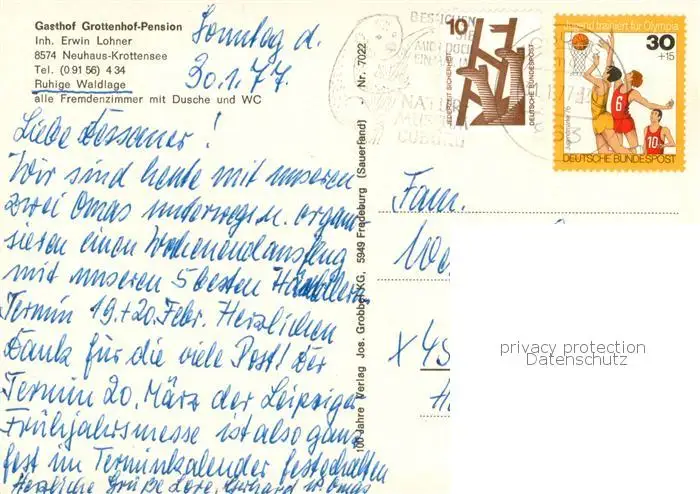 Gasthof Grottenhof-Pension
Inh. Erwin Lohner
8574 Neuhaus-Krottensee
Tel. (0 91 56) 4 34
Ruhige Waldlage
alle Fremdenzimmer mit Dusche und WC
Sonntag d.
30.1.77
Liebe !
Wir sind heute mit unseren
zwei Omas unterwegs u. organi-
sieren einen Wochenendausflug
mit unseren 5 besten
Termin 19.+20. Febr. Herzlichen
Dank für die viele Post! Der
Termin 20. März der Leipziger
Frühjahrsmesse ist also ganz
fest im Terminkalender festgehalten
Herzliche Grüße Lore, Gerhard u. Omas
100 Jahre Verlag Jos. Grobbel KG, 5949 Fredeburg (Sauerland) - Nr. 7022
BESUCHEN
SIE
MICH DOCH
EINMAL IM
NATUR
MUSEUM
COBURG
10
JEDERZEIT SICHERHEIT
DEUTSCHE BUNDESPOST
Jugend trainiert für Olympia
30
+15
6
10
Jugendmarke 76
DEUTSCHE BUNDESPOST
Fam.
x 45
privacy protection
Datenschutz